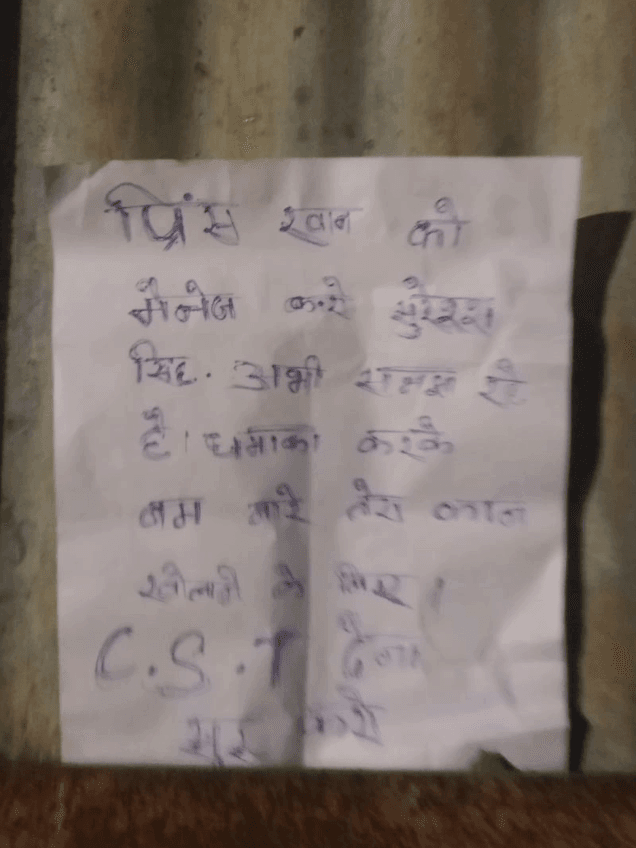 प्रिंस खान को
मैनेज करो सुरेश
सिंह. अभी समझ रहे
है। धमाका करके
बम मारे तेरा कान
खोलने के लिए।
C.S.T देना
सुरु करो